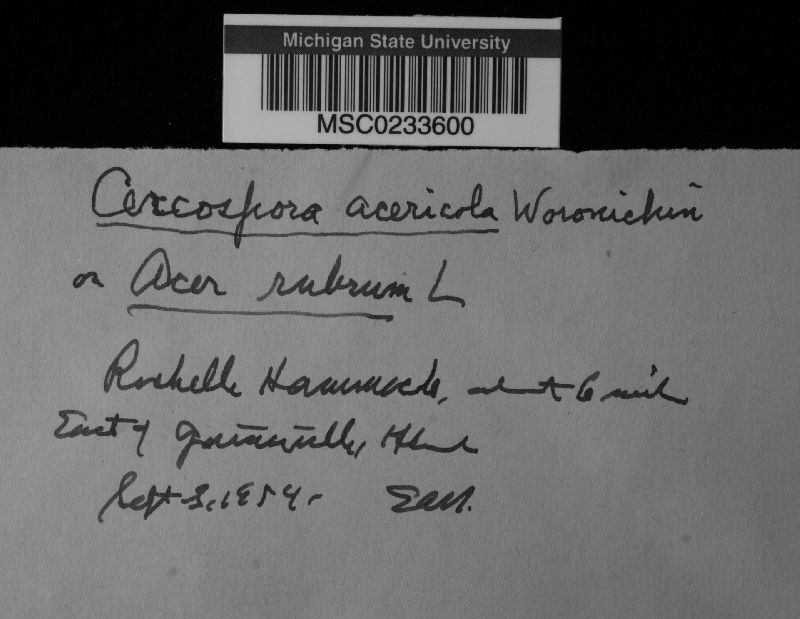 Michigan State University
MSC0233600
Cercospora acericola Woronichin
on Acer rubrum L
Rochelle Hammock, about 6 mile
East of Gainesville,
Sept 3, 1954.